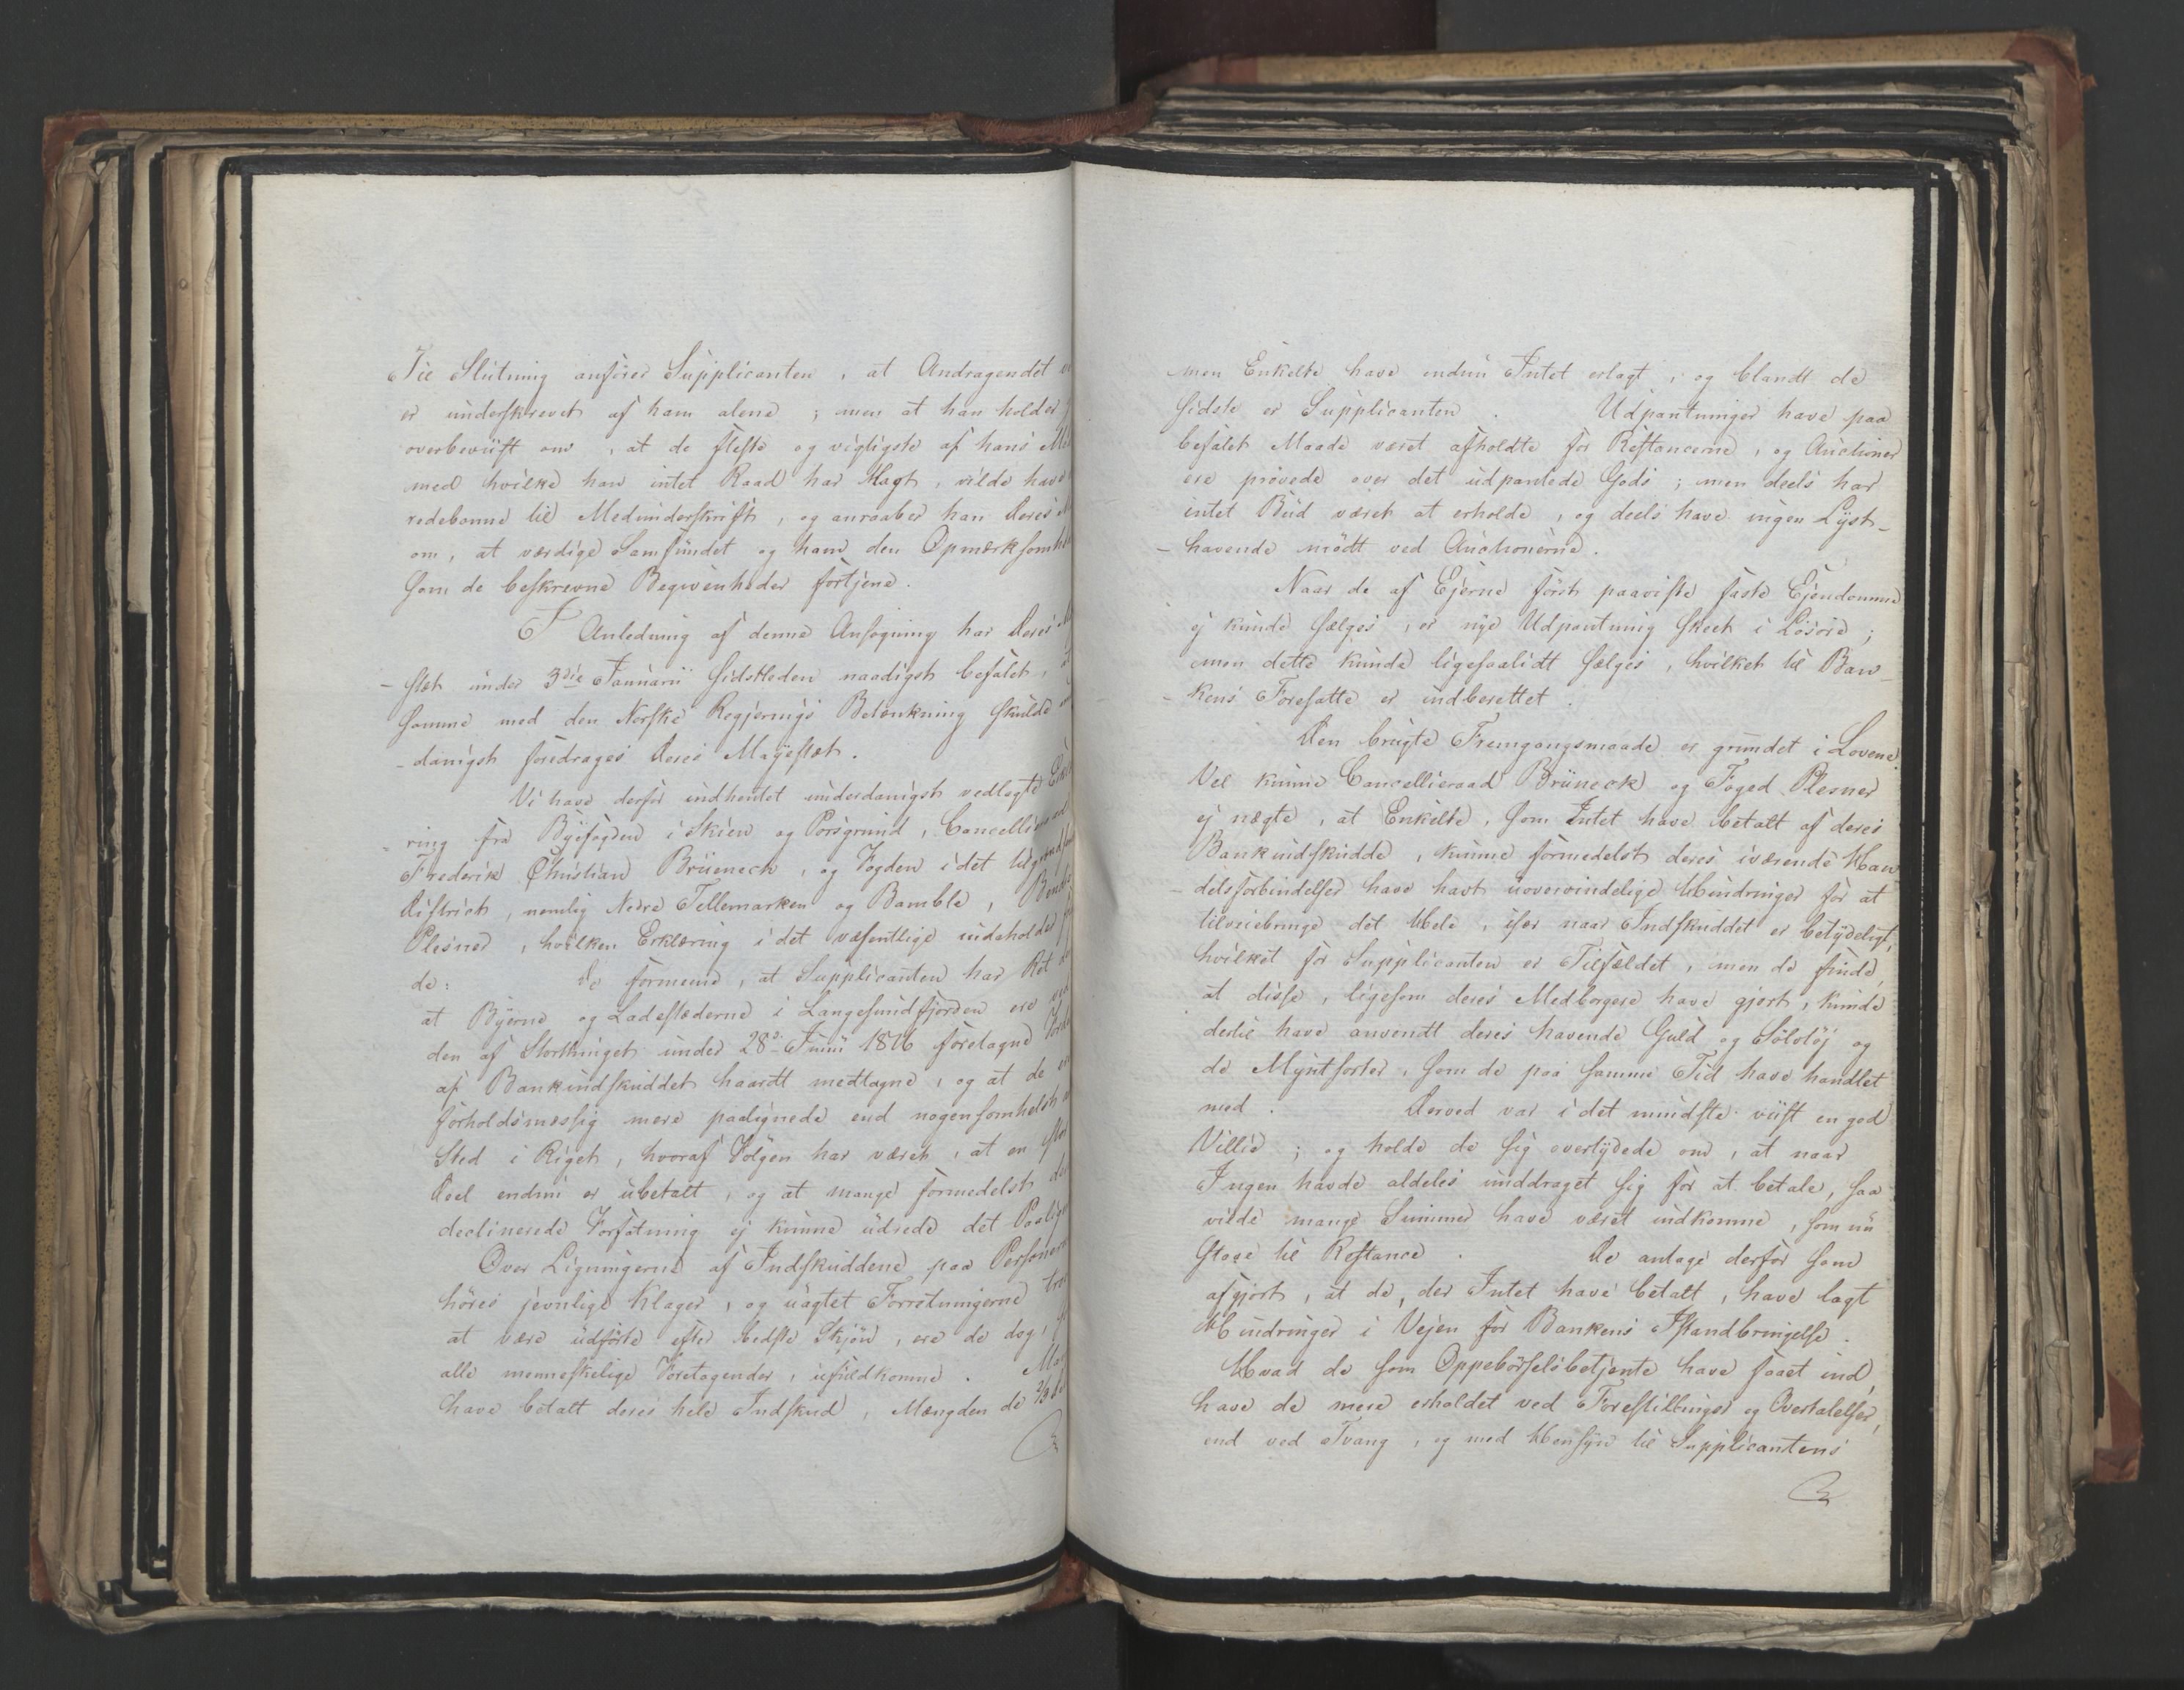 Til Slutning anfører Supplicanten, at Andragendet
er underskrevet af ham alene; men at han holder
overbeviist om, at de fleste og vigtigste af hans
med hvilke han intet Raad har Magt, vilde have
redebonne til Medunderskrift, og anraaber han Deres
om, at værdige Samfundet og ham den Opmærksomhed
som de beskrevne Begivenheder fortjene.
I Anledning af denne Ansøgning har Deres
-stæt under 3die Januarii sidstleden naadigst befalet,
samme med den Norske Regjerings Betænkning skulde
-danigst foredrages Deres Majestæt.
Vi have derfor indhentet underdanigst vedlagte Erklæ
-ring fra Byefogden i Skien og Porsgrund, Cancelliraad
Frederik Christian Brüeneck, og Fogden i det tilgrændsende
District, nemlig Nedre Tellemarken og Bamble,
Plesner, hvilken Erklæring i det væsentlige indeholder
de: de formene, at Supplicanten har Ret
at Byerne og Ladestæderne i Langesundfjorden ere ved
den af Storthinget under 28de Junii 1816 foretagne
af Bankindskuddet haardt medtagne, og at de ere
forholdsmæssig mere paalignede end nogensomhelst
Sted i Riget, hvoraf Følgen har været, at en stor
Deel endnu er ubetalt, og at mange formedelst
declinerede Forfatning ej kunne udrede det
Over Ligningerne af Indskuddene paa Personerne
høres jevnlige Klager, og uagtet Forretningerne
at være udførte efter bedste Skjøn, ere de dog,
alle menneskelige Foretagender, ufuldkomne.
have betalt deres hele Indskud, Mængden de 2/3de
men Enkelte have endnu Intet erlagt, og blandt de
sidste er Supplicanten. Udpantninger have paa
befalet Maade været afholdte for Restancerne, og Auctioner
ere prøvede over det udpantede Gods; men deels har
intet Bud været at erholde, og deels have ingen Lyst-
-havende mødt ved Auctionerne.
Naar de af Ejerne først paaviste faste Ejendomme
ej kunde sælges, er nye Udpantning skeet i Løsøre;
men dette kunde ligesaalidt sælges, hvilket til Ban-
-kens Foresatte er indberettet.
Den brugte Fremgangsmaade er grundet i Lovene.
Vel kunne Cancellieraad Brüneck og Foged Plesner
ej nægte, at Enkelte, som Intet have betalt af deres
Bankindskudde, kunne formedelst deres iværende Han
-delsforbindelser have havt uovervindelige Hindringer for at
tilveiebringe det Hele, især naar Indskuddet er betydeligt,
hvilket for Supplicanten er Tilfældet, men de finde,
at disse, ligesom deres Medborgere have gjort, kunde
dertil have anvendt deres havende Guld og Søltøj og
de Myntsorter, som de paa samme Tid have handlet
med. Derved var i det mindste viist en god
Villie; og holde de sig overtydede om, at naar
Ingen havde aldeles unddraget sig for at betale, saa
vilde mange Summer have været indkomne, som nu
staae til Restance. De antage derfor som
afgjort, at de, der Intet have betalt, have lagt
Hindringer i Vejen for Bankens Istandbringelse.
Hvad de som Oppebørselsbetjente have faaet ind,
have de mere erholdet ved Forestillinger og Overtalelser,
end ved Tvang, og med Hensyn til Supplicantens